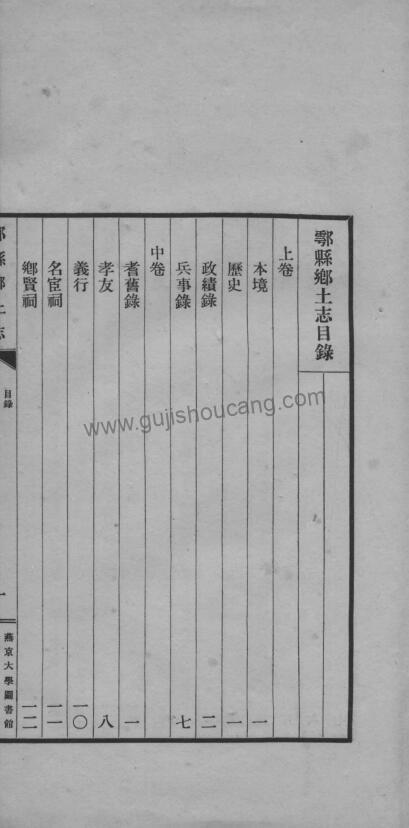 鄠縣鄉土志目錄
上卷
本境 一
歷史 一
政績錄 二
兵事錄 七
中卷
耆舊錄 一
孝友 八
義行 一〇
名宦祠 一一
鄉賢祠 一二
鄠縣鄉土志
目錄
一
燕京大學圖書館
www.gujishoucang.com